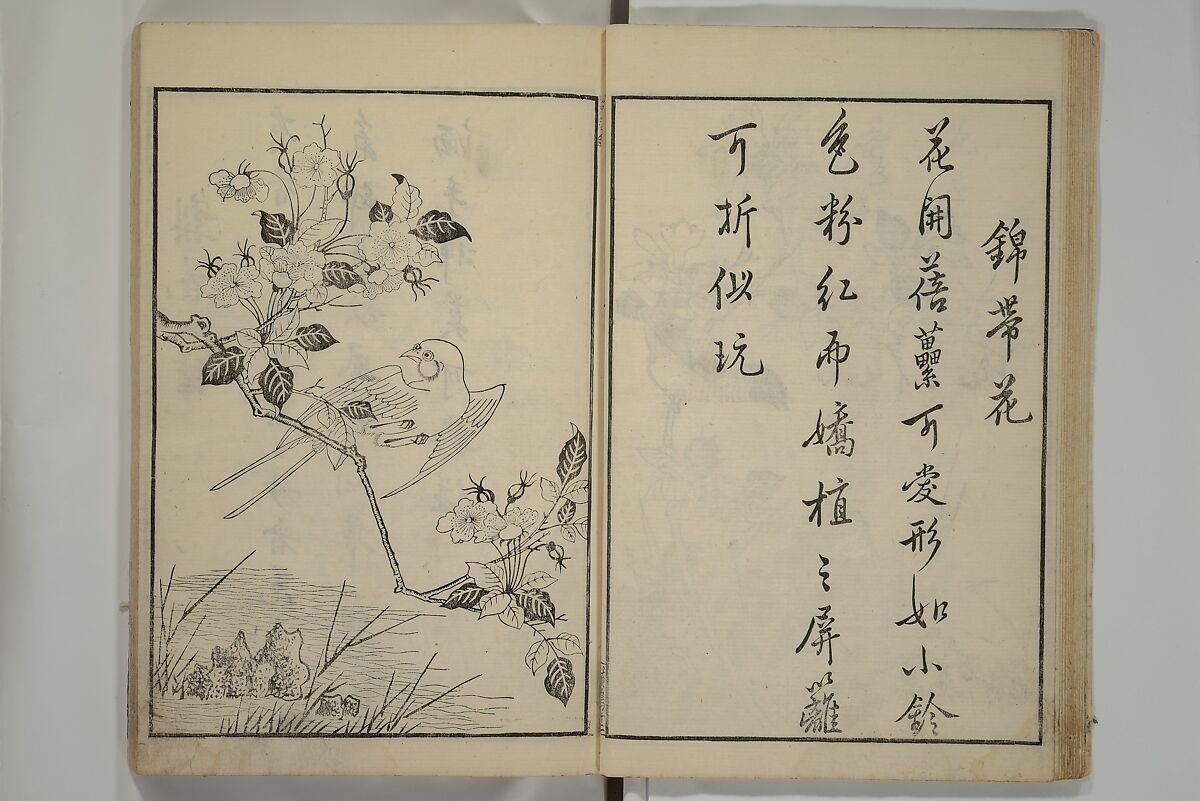 錦帯花
花開蓓蘽可愛形如小鈴
色粉紅而嬌植之屏籬
可折似玩